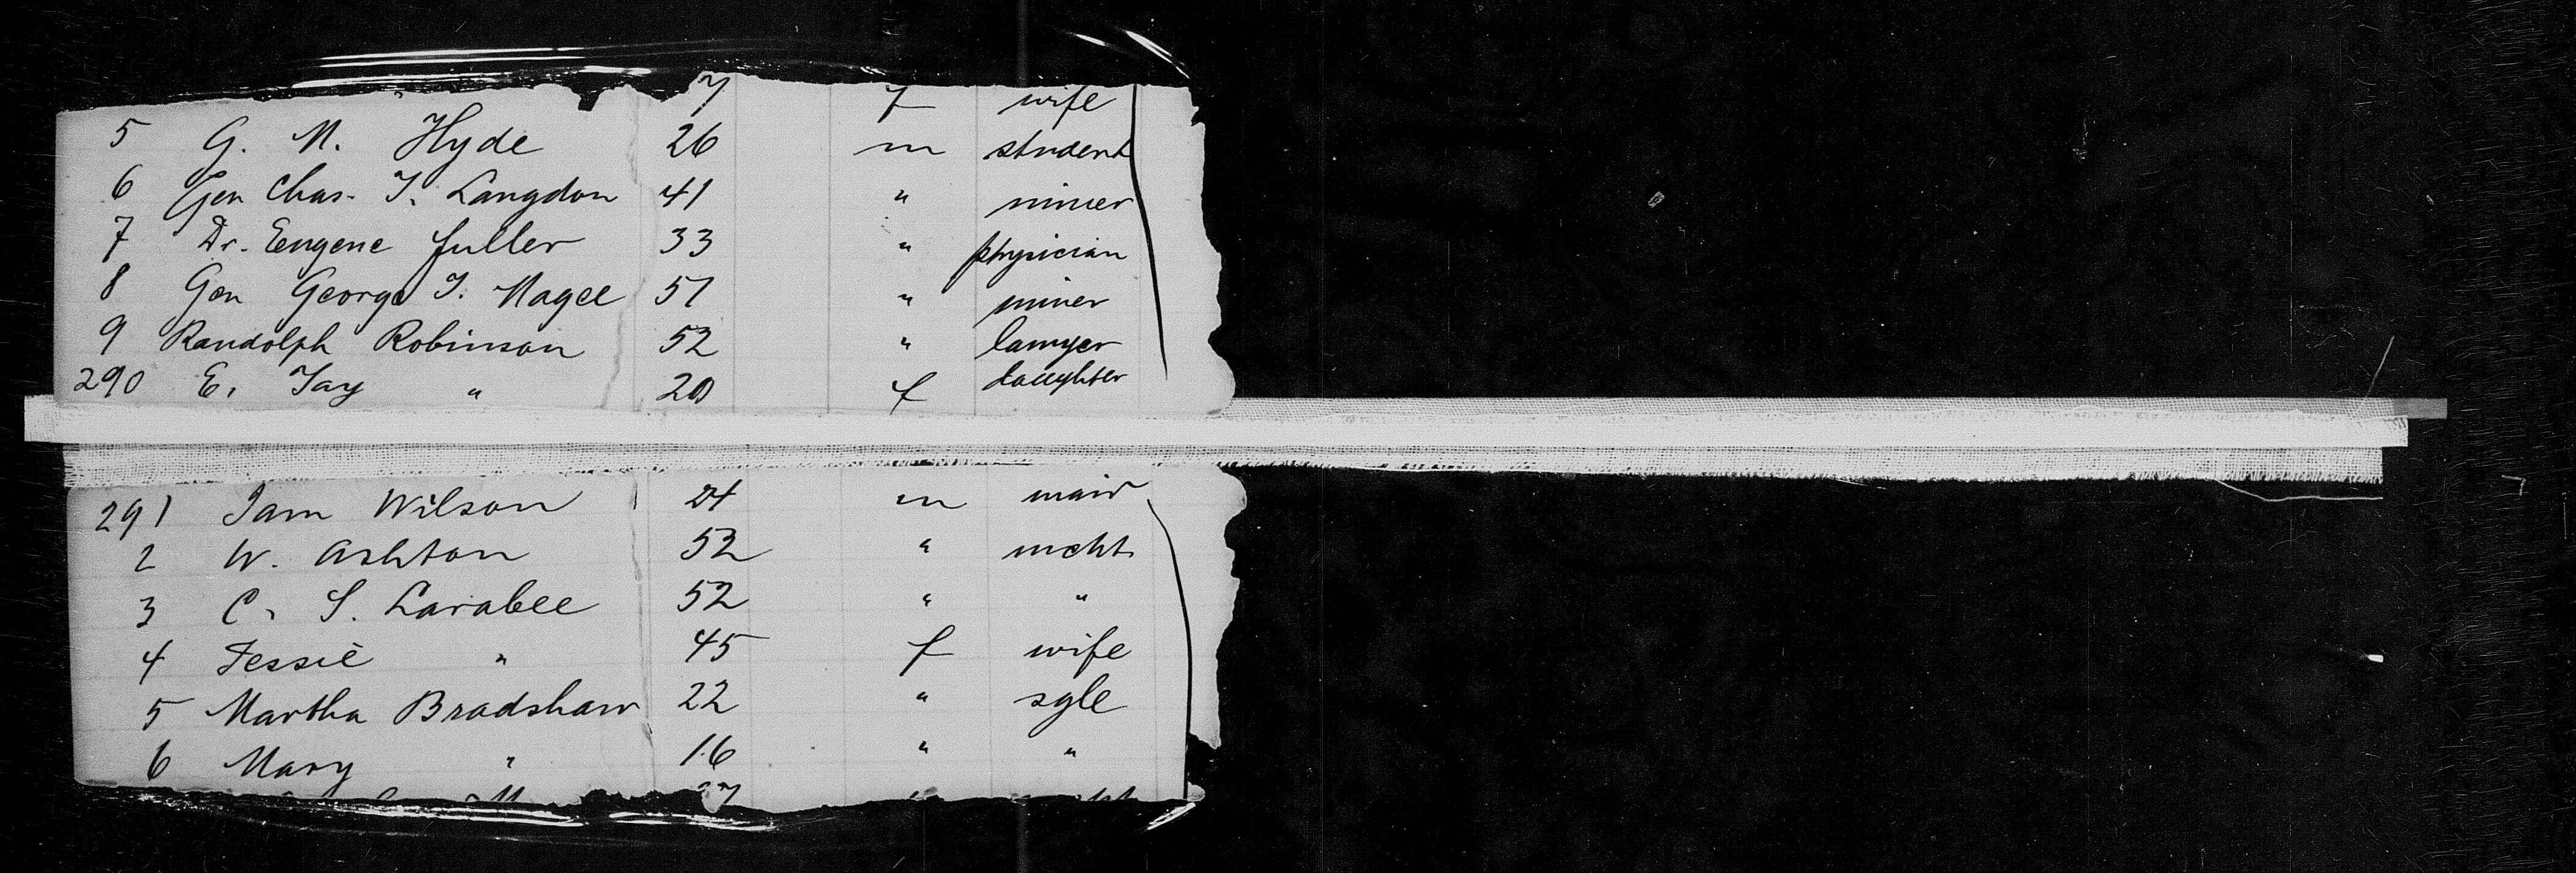 f wife
5 G. M. Hyde 26 m student
6 Gen Chas. J. Langdon 41 " miner
7 Dr. Eugene Fuller 33 " physician
8 Gen George J. Magee 51 " miner
9 Randolph Robinson 52 " lawyer
290 E. Jay " 20 f daughter
291 Jam Wilson 24 m maid
2 W. Ashton 52 " mcht
3 C. S. Larabee 52 " "
4 Jessie " 45 f wife
5 Martha Bradshaw 22 " sgle
6 Mary " 16 " "